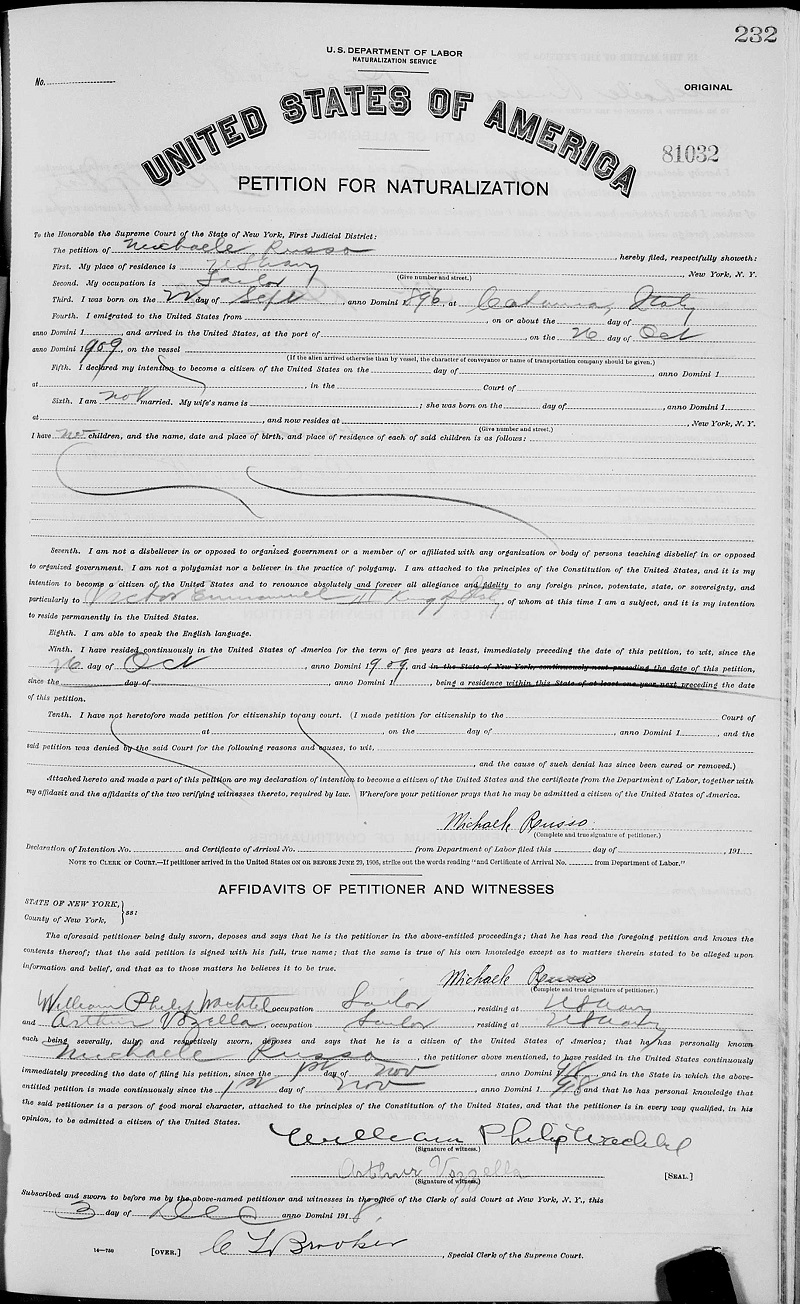 232
U.S. DEPARTMENT OF LABOR
NATURALIZATION SERVICE
No.
ORIGINAL
UNITED STATES OF AMERICA
81032
PETITION FOR NATURALIZATION
To the Honorable the Supreme Court of the State of New York, First Judicial District:
The petition of Michaele Russo, hereby filed, respectfully showeth:
First. My place of residence is U S Navy, New York, N. Y.
(Give number and street.)
Second. My occupation is Sailor
Third. I was born on the day of Sept, anno Domini 1896, at Italy
Fourth. I emigrated to the United States from, on or about the day of
anno Domini 1, and arrived in the United States, at the port of, on the 26 day of Oct
anno Domini 1909, on the vessel
(If the alien arrived otherwise than by vessel, the character of conveyance or name of transportation company should be given.)
Fifth. I declared my intention to become a citizen of the United States on the day of, anno Domini 1
at, in the Court of
Sixth. I am not married. My wife's name is; she was born on the day of, anno Domini 1
at, and now resides at, New York, N. Y.
(Give number and street.)
I have no children, and the name, date and place of birth, and place of residence of each of said children is as follows:
Seventh. I am not a disbeliever in or opposed to organized government or a member of or affiliated with any organization or body of persons teaching disbelief in or opposed
to organized government. I am not a polygamist nor a believer in the practice of polygamy. I am attached to the principles of the Constitution of the United States, and it is my
intention to become a citizen of the United States and to renounce absolutely and forever all allegiance and fidelity to any foreign prince, potentate, state, or sovereignty, and
particularly to Victor Emmanuel III King of Italy, of whom at this time I am a subject, and it is my intention
to reside permanently in the United States.
Eighth. I am able to speak the English language.
Ninth. I have resided continuously in the United States of America for the term of five years at least, immediately preceding the date of this petition, to wit, since the
26 day of Oct, anno Domini 1909, and in the State of New York, continuously next preceding the date of this petition,
since the day of, anno Domini 1, being a residence within this State of at least one year next preceding the date
of this petition.
Tenth. I have not heretofore made petition for citizenship to any court. (I made petition for citizenship to the Court of
at, on the day of, anno Domini 1, and the
said petition was denied by the said Court for the following reasons and causes, to wit,
, and the cause of such denial has since been cured or removed.)
Attached hereto and made a part of this petition are my declaration of intention to become a citizen of the United States and the certificate from the Department of Labor, together with
my affidavit and the affidavits of the two verifying witnesses thereto, required by law. Wherefore your petitioner prays that he may be admitted a citizen of the United States of America.
Michaele Russo.
(Complete and true signature of petitioner.)
Declaration of Intention No. and Certificate of Arrival No. from Department of Labor filed this day of, 191
NOTE TO CLERK OF COURT.—If petitioner arrived in the United States ON OR BEFORE JUNE 29, 1906, strike out the words reading "and Certificate of Arrival No. from Department of Labor."
AFFIDAVITS OF PETITIONER AND WITNESSES
STATE OF NEW YORK, } ss:
County of New York,
The aforesaid petitioner being duly sworn, deposes and says that he is the petitioner in the above-entitled proceedings; that he has read the foregoing petition and knows the
contents thereof; that the said petition is signed with his full, true name; that the same is true of his own knowledge except as to matters therein stated to be alleged upon
information and belief, and that as to those matters he believes it to be true.
Michaele Russo
(Complete and true signature of petitioner.)
William Philip Wachtel, occupation Sailor, residing at U S Navy
and Arthur Vozzella, occupation Sailor, residing at U S Navy
each being severally, duly, and respectively sworn, deposes and says that he is a citizen of the United States of America; that he has personally known
Michaele Russo, the petitioner above mentioned, to have resided in the United States continuously
immediately preceding the date of filing his petition, since the 1st day of Nov, anno Domini 1918, and in the State in which the above-
entitled petition is made continuously since the 1st day of Nov, anno Domini 1918 and that he has personal knowledge that
the said petitioner is a person of good moral character, attached to the principles of the Constitution of the United States, and that the petitioner is in every way qualified, in his
opinion, to be admitted a citizen of the United States.
William Philip Wachtel
(Signature of witness.)
Arthur Vozzella
(Signature of witness.)
[SEAL.]
Subscribed and sworn to before me by the above-named petitioner and witnesses in the office of the Clerk of said Court at New York, N. Y., this
3 day of Dec anno Domini 1918.
14—756
[OVER.]
C L Brooker, Special Clerk of the Supreme Court.